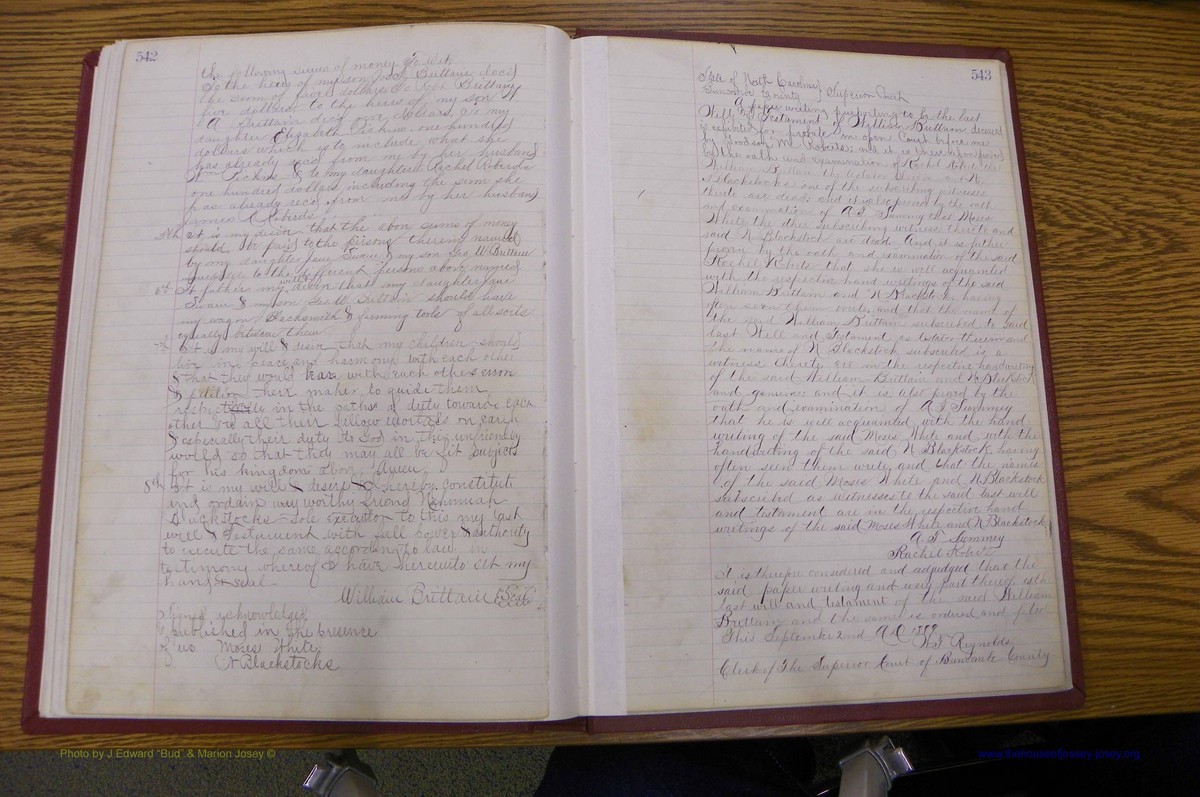 542
the following sums of money To Wit,
To the heirs of my son Brittain decd
the sum of five dollars To Brittain
five dollars to the heirs of my son
A Brittain decd one dollars, to my
daughter Elizabeth one hundred
dollars which is to include what she
has already recd from me by her husband
& to my daughter Rachel Roberts
one hundred dollars including the sum she
has already recd from me by her husband
Roberts
It is my desire that the above sums of money
should be paid to the persons therein named
by my daughter Jane Swain & my son Geo. W Brittain
to the different persons above named
6th It father my will & desire that my daughter Jane
Swain & my son Geo W Brittain should have
my wagon Blacksmith & farming tools of all sorts
equally between them
7th It is my will & desire that my children should
live in peace and harmony with each other
& that they would bear with each others
& petition their maker to guide them
in the paths of duty towards each
other & all their fellow mortals on earth
& especially their duty to God in this unfriendly
world so that they may all be fit subjects
for his kingdom above. Amen.
8th It is my will & desire & I hereby constitute
and ordain my worthy friend Nehemiah
Blackstocks sole executor to this my last
will & testament with full power & authority
to execute the same according to law. in
testimony whereof I have hereunto set my
hand & seal
William Brittain Seal
Signed acknowledged
& published in the presence
of us Moses White
N Blackstocks
543
State of North Carolina Superior Court
Buncombe County
A paper writing purporting to be the last
Will and Testament of William Brittain deceased
is exhibited for probate in open Court before me
by Goodson M. Roberts; and it is thereupon proved
by the oath and examination of Rachel White that
William Brittain the testator therein and N
Blackstocks one of the subscribing witnesses
thereto are dead; and it is also proved by the oath
and examination of A T Summey that Moses
White the other subscribing witness thereto and
said N Blackstock are dead. And it is further
proven by the oath and examination of the said
Rachel White that she is well acquainted
with the respective hand writings of the said
William Brittain and N Blackstock having
often seen them write, and that the name of
the said William Brittain subscribed to said
last Will and Testament as testator thereom and
the name of N Blackstock subscribed as a
witness thereto are in the respective handwriting
of the said William Brittain and N Blackstock
and genuine: and it is also proved by the
oath and examination of A T Summey
that he is well acquainted with the hand
writing of the said Moses White and with the
handwriting of the said N Blackstock having
often seen them write, and that the names
of the said Moses White and N Blackstock
subscribed as witnesses to the said last will
and testament are in the respective hand
writings of the said Moses White and N Blackstock
A. T. Summey
Rachel Roberts
It is therefore considered and adjudged that the
said paper writing and every part thereof is the
last will and testament of the said William
Brittain and the same is ordered and filed
This September 2nd A D 1889
Reynolds
Clerk of The Superior Court of Buncombe County
Photo by J Edward "Bud" & Marion Josey ©
www.thehouseofjossey-josey.org